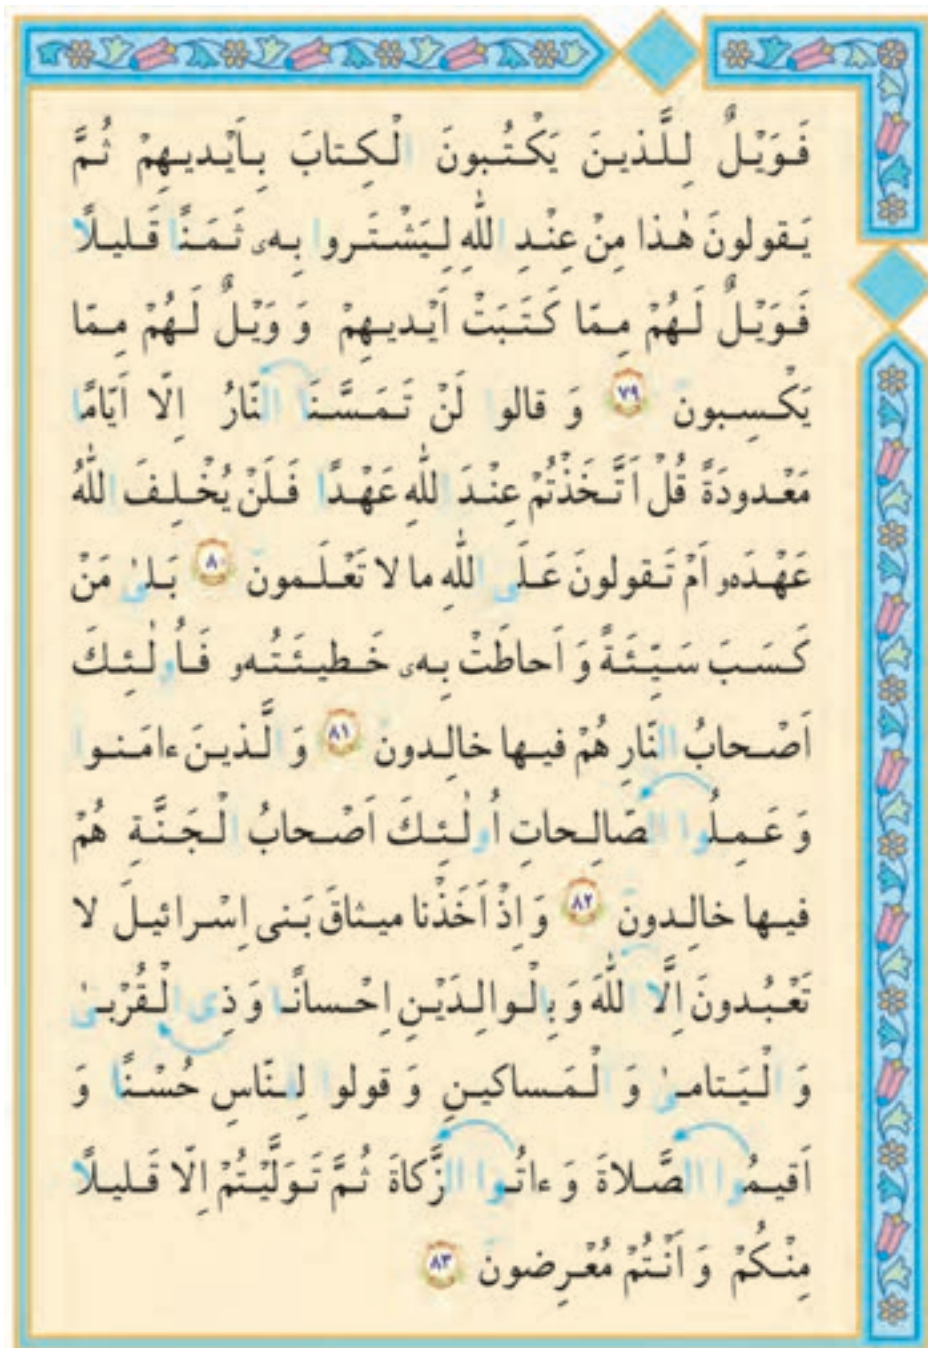 فَوَيْلٌ لِلَّذينَ يَكْتُبونَ الْكِتابَ بِاَيْديهِمْ ثُمَّ
يَقولونَ هٰذا مِنْ عِنْدِ اللّٰهِ لِيَشْتَروا بِهٖ ثَمَنًا قَليلًا
فَوَيْلٌ لَهُمْ مِمّا كَتَبَتْ اَيْديهِمْ وَ وَيْلٌ لَهُمْ مِمّا
يَكْسِبونَ ﴿٧٩﴾ وَ قالوا لَنْ تَمَسَّنَا النّارُ اِلّا اَيّامًا
مَعْدودَةً قُلْ اَتَّخَذْتُمْ عِنْدَ اللّٰهِ عَهْدًا فَلَنْ يُخْلِفَ اللّٰهُ
عَهْدَهو اَمْ تَقولونَ عَلَى اللّٰهِ ما لا تَعْلَمونَ ﴿٨٠﴾ بَلىٰ مَنْ
كَسَبَ سَيِّئَةً وَ اَحاطَتْ بِهٖ خَطيئَتُهو فَاُولٰئِكَ
اَصْحابُ النّارِ هُمْ فيها خالِدونَ ﴿٨١﴾ وَ الَّذينَ ءامَنوا
وَ عَمِلُوا الصّالِحاتِ اُولٰئِكَ اَصْحابُ الْجَنَّةِ هُمْ
فيها خالِدونَ ﴿٨٢﴾ وَ اِذْ اَخَذْنا ميثاقَ بَنى اِسْرائيلَ لا
تَعْبُدونَ اِلَّا اللّٰهَ وَ بِالْوالِدَيْنِ اِحْسانًا وَ ذِى الْقُرْبىٰ
وَ الْيَتامىٰ وَ الْمَساكينِ وَ قولوا لِلنّاسِ حُسْنًا وَ
اَقيمُوا الصَّلاةَ وَ ءاتُوا الزَّكاةَ ثُمَّ تَوَلَّيْتُمْ اِلّا قَليلًا
مِنْكُمْ وَ اَنْتُمْ مُعْرِضونَ ﴿٨٣﴾